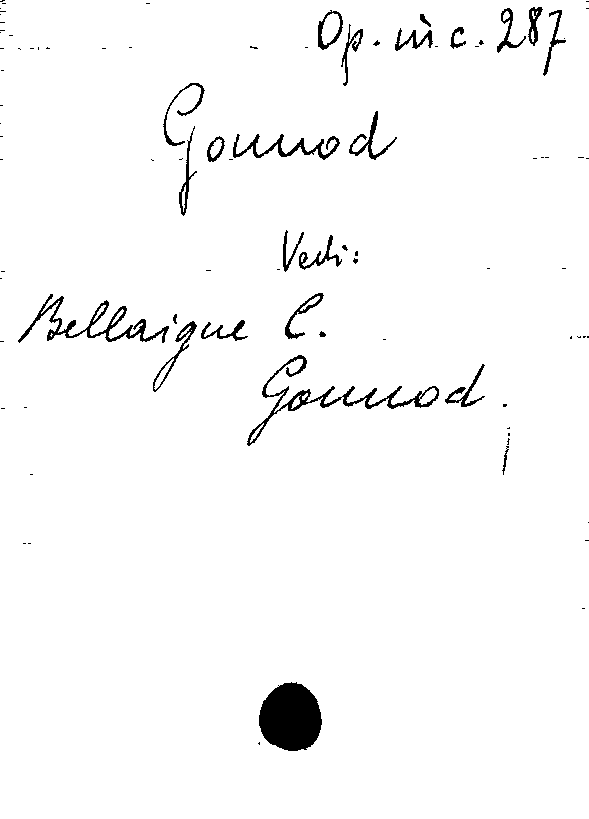 Op. inc. 287
Gounod
Vedi:
Bellaigue C.
Gounod.